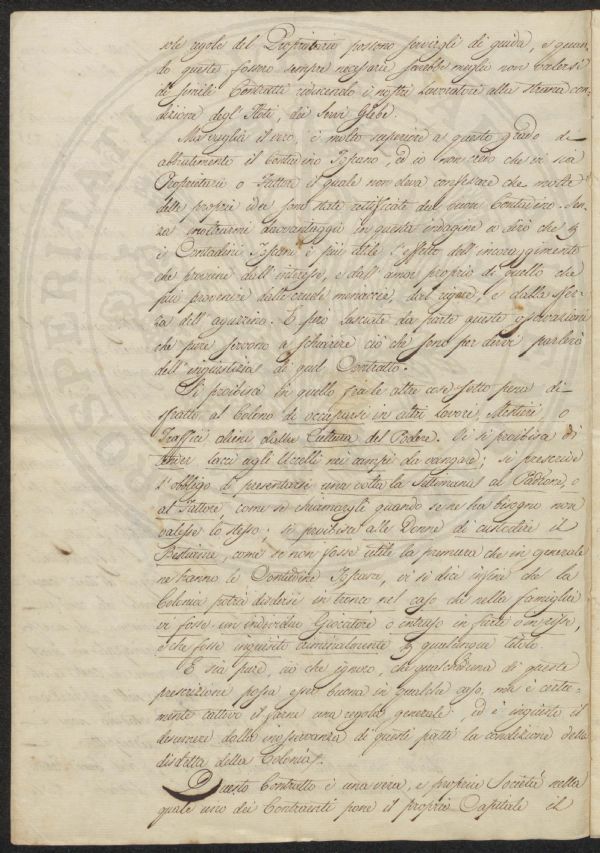 sole regole del Proprietario possono servirgli di guida, e quan-
do queste fossero sempre necessarie sarebbe meglio non valersi
di simile Contratto riducendo i nostri Lavoratori alla strana con-
dizione degl' Iloti, dei Servi Gleba.
Ma voglia il vero, è molto superiore a questo grado di
abbrutimento il Contadino Toscano, ed io non credo che vi sia
Proprietario o Fattore il quale non deva confessare che molte
delle proprie idee sono state rettificate dal buon Contadino. Sen-
za inoltrarmi davvantaggio in questa indagine io dirò che
i Contadini Toscani è più utile l'effetto dell'incoraggimento
che proviene dall'interesse, e dall'amor proprio di quello che
può provenire dalle crude minaccie, dal rigore, e dalla sfer-
za dell'aguzzino. E però lasciate da parte queste osservazioni
che pure servono a schiarire ciò che sono per dirvi parlerò
dell'ingiustizia di quel Contratto.
Si proibisce in quello fra le altre cose sotto pena di-
sfratto al Colono di occuparsi in altri Lavori, Mestieri o
Traffici alieni dalla Cultura del Podere. Vi si proibisce di
tender lacci agli Uccelli nei campi da vangare; si prescrive
l'obbligo di presentarsi una volta la Settimana al Padrone, o
al Fattore, come se chiamargli quando se ne ha bisogno non
valesse lo stesso; si proibisce alle Donne di custodire il
Bestiame, come se non fosse utile la premura che in generale
ne hanno le Contadine Toscane, vi si dice infine che la
Colonia potrà disdirsi in tronco nel caso che nella famiglia
vi fosse un individuo Giocatore o intruso in furti o in risse,
o che fosse inquisito criminalmente qualunque titolo.
E sia pure, ciò che ignoro, che qualcheduna di queste
prescrizione possa esser buona in qualche caso, ma è certa-
mente cattivo il farne una regola generale, ed è ingiusto il
desumere dalla inosservanza di questi patti la condizione della
disdetta della Colonia.
Questo Contratto è una vera, e propria Società nella
quale uno dei Contraenti pone il proprio Capitale il
PROSPERITATI